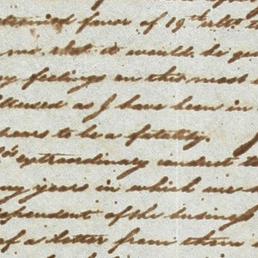 favor of 19th ult.
me that it would be
feelings on this most
as I have been in
to be a fatality.
extraordinary conduct
years in which we
of the business
of a letter from them